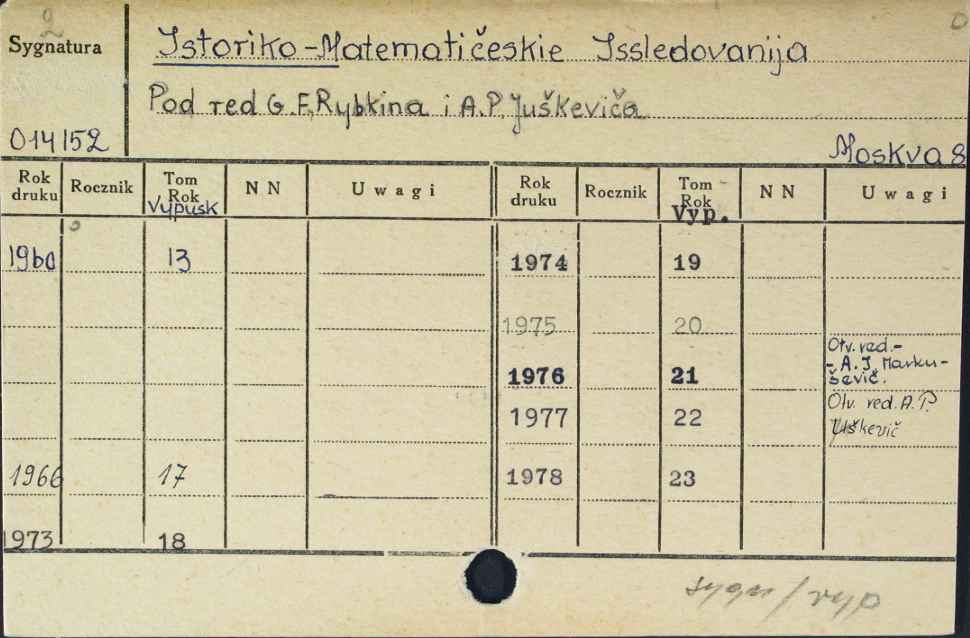 2
Sygnatura
Istoriko-Matematičeskie Issledovanija
Pod red G.F.Rybkina i A.P.Juškeviča
014152
Moskva 8
Rok druku Rocznik Tom Rok Vypusk NN Uwagi Rok druku Rocznik Tom Rok Vyp. NN Uwagi
1960 13 1974 19
1975 20
1976 21 Otv. red.- - A. I Marku- ševič.
1977 22 Otv. red. A.P. Juškevič
1966 17 1978 23
1973 18